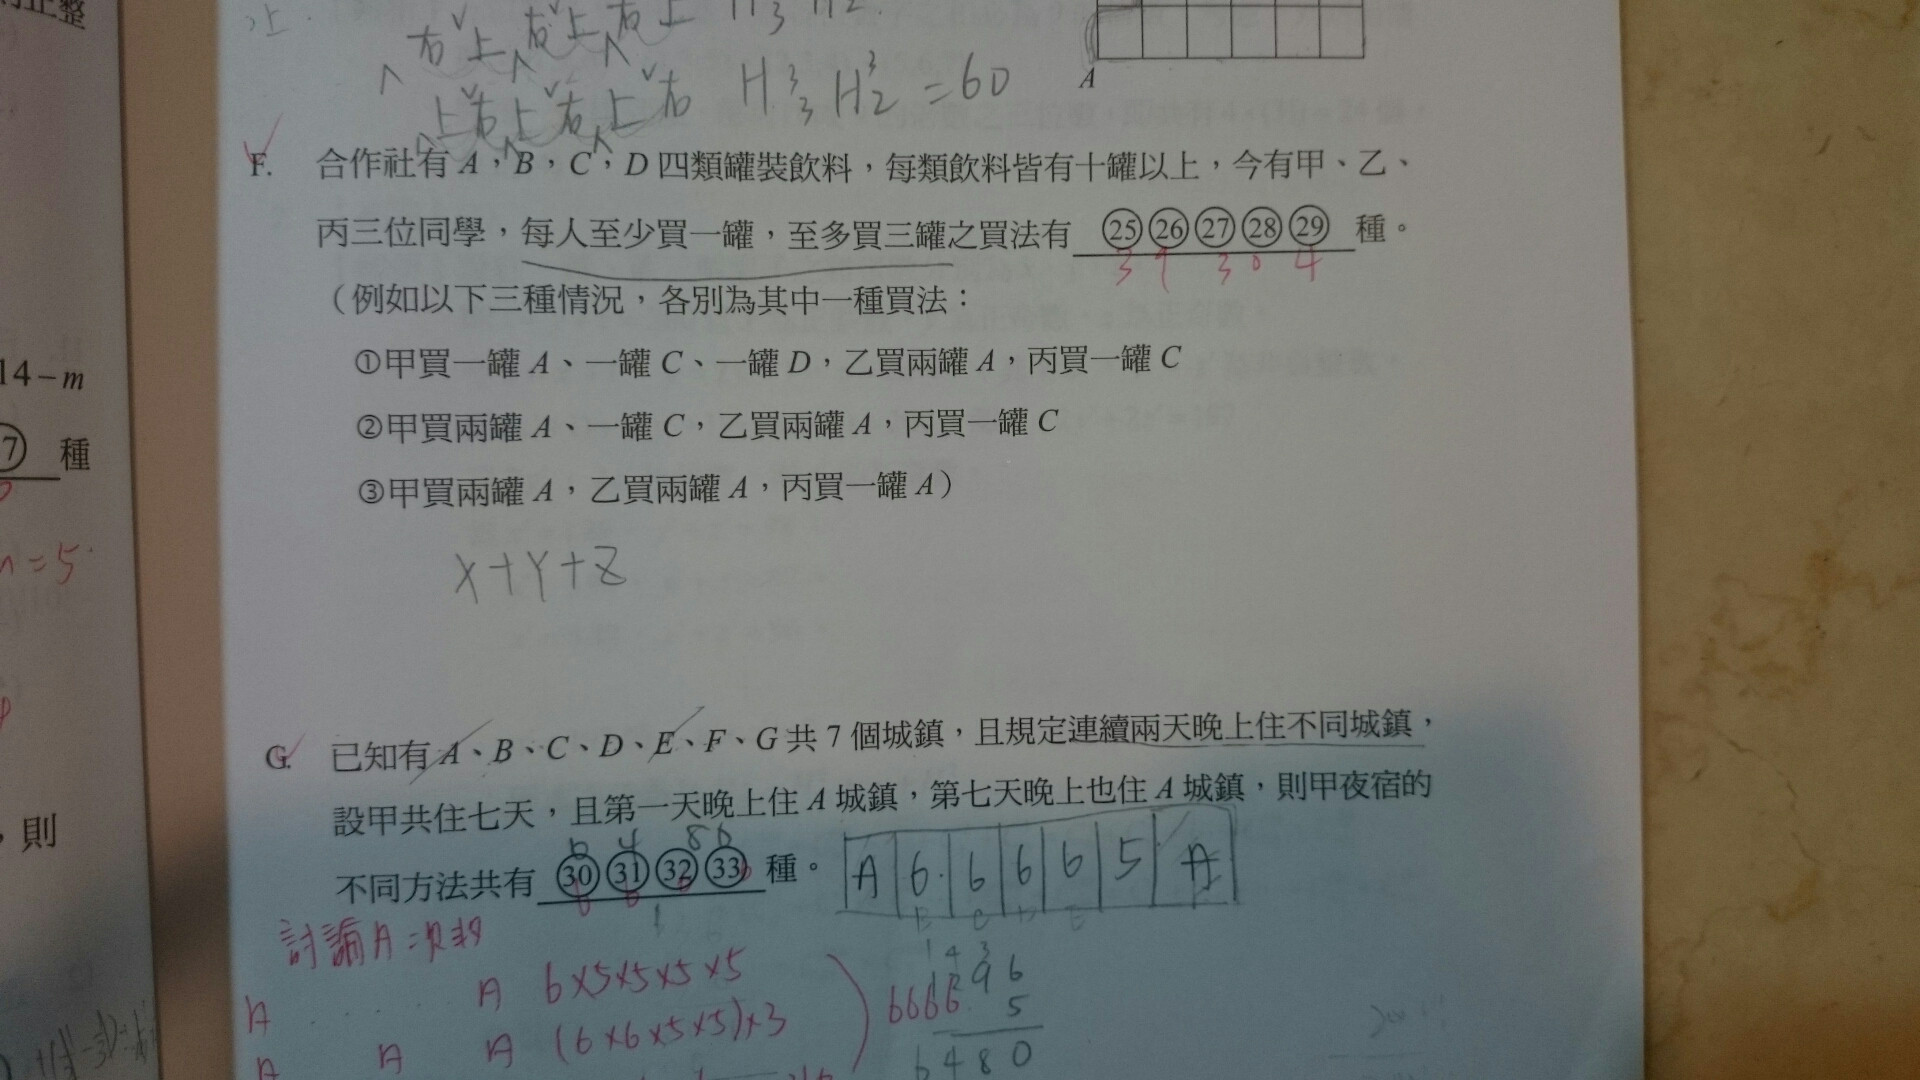 右上右上右上 H 3 H 2
上右上右上右 H³₃ H³₂ = 60
A
F. 合作社有 A，B，C，D 四類罐裝飲料，每類飲料皆有十罐以上，今有甲、乙、
丙三位同學，每人至少買一罐，至多買三罐之買法有 ㉕㉖㉗㉘㉙ 種。
3 9 3 0 4
（例如以下三種情況，各別為其中一種買法：
①甲買一罐 A、一罐 C、一罐 D，乙買兩罐 A，丙買一罐 C
②甲買兩罐 A、一罐 C，乙買兩罐 A，丙買一罐 C
③甲買兩罐 A，乙買兩罐 A，丙買一罐 A）
X+Y+Z
G. 已知有 A、B、C、D、E、F、G 共 7 個城鎮，且規定連續兩天晚上住不同城鎮，
設甲共住七天，且第一天晚上住 A 城鎮，第七天晚上也住 A 城鎮，則甲夜宿的
6 4 8 0
不同方法共有 ㉚㉛㉜㉝ 種。 A 6 6 6 6 5 A
6 6 6 6
B C D E
討論A
A A 6×5×5×5×5
A A A (6×6×5×5)×3
6666
1296
5
6480
14−m
7 種
n=5
，則